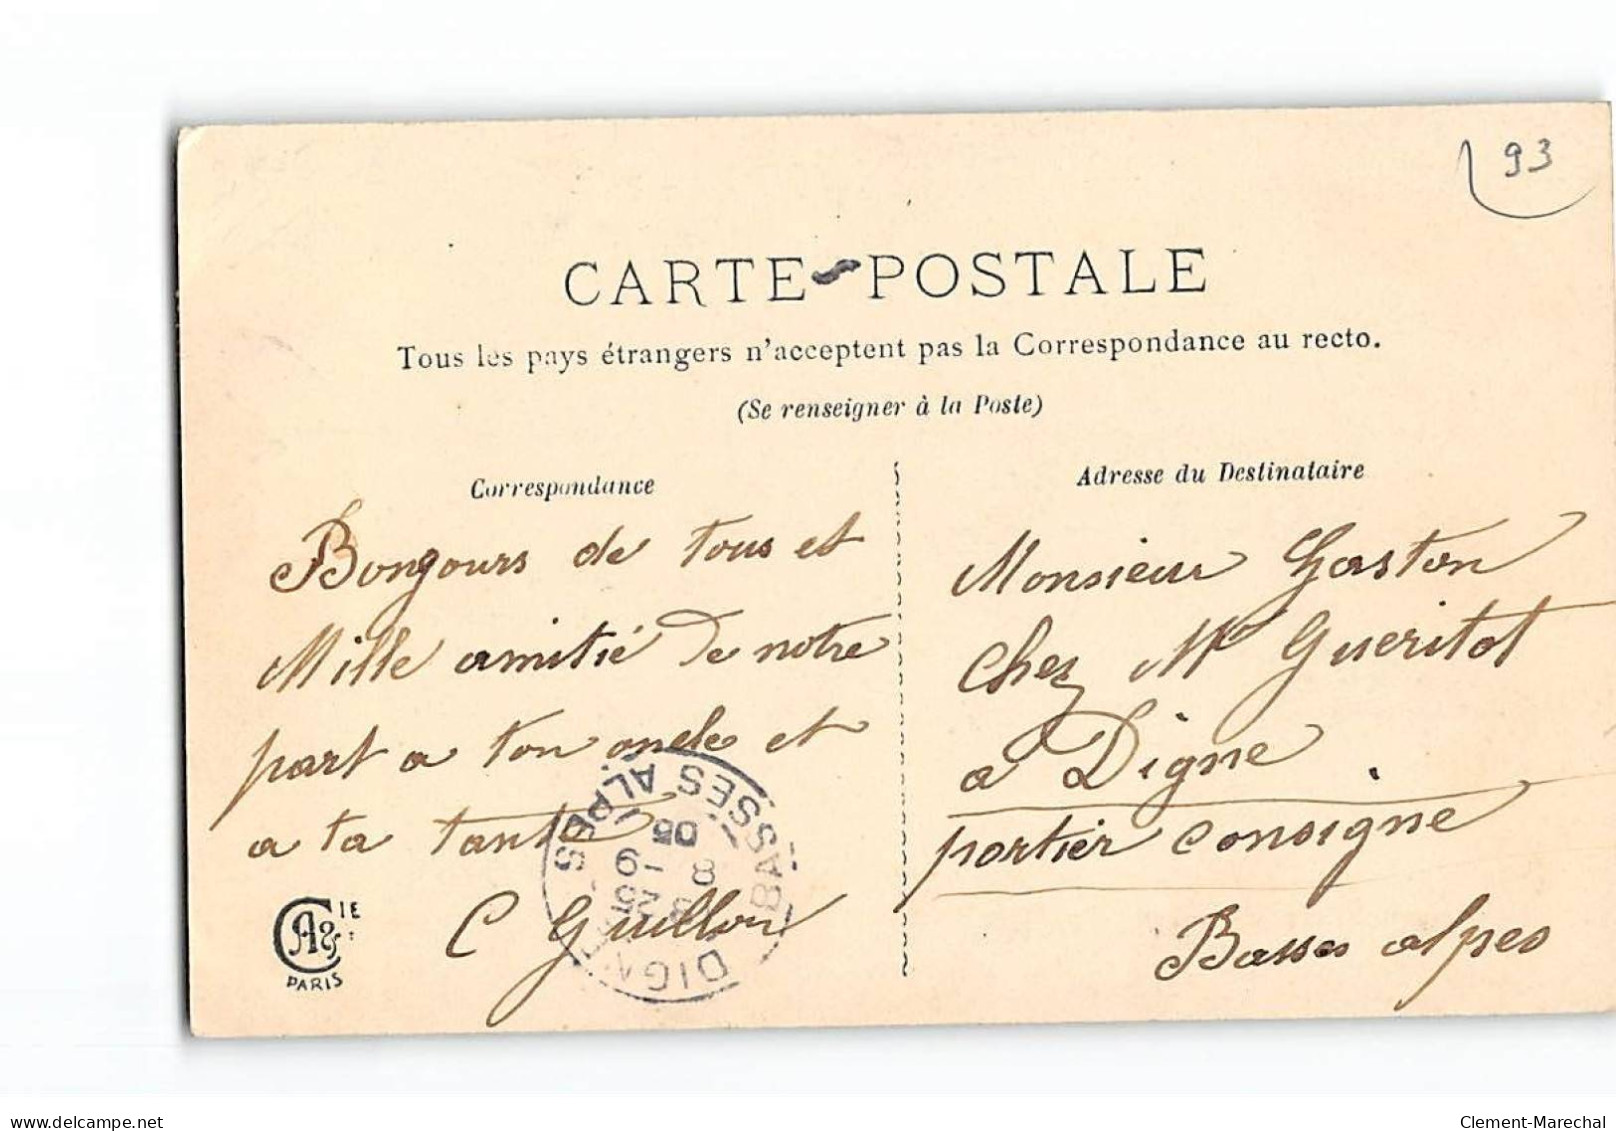 93
CARTE POSTALE
Tous les pays étrangers n'acceptent pas la Correspondance au recto.
(Se renseigner à la Poste)
Correspondance
Bongours de tous et
Mille amitié De notre
part a ton oncle et
a ta tante
C Guillon
Adresse du Destinataire
Monsieur Gaston
chez Mr Gueritot
a Digne
portier consigne
Basses alpes
DIGNE
BASSES ALPES
8 25
8 -9
05
CA & CIE
PARIS
www.delcampe.net
Clement-Marechal